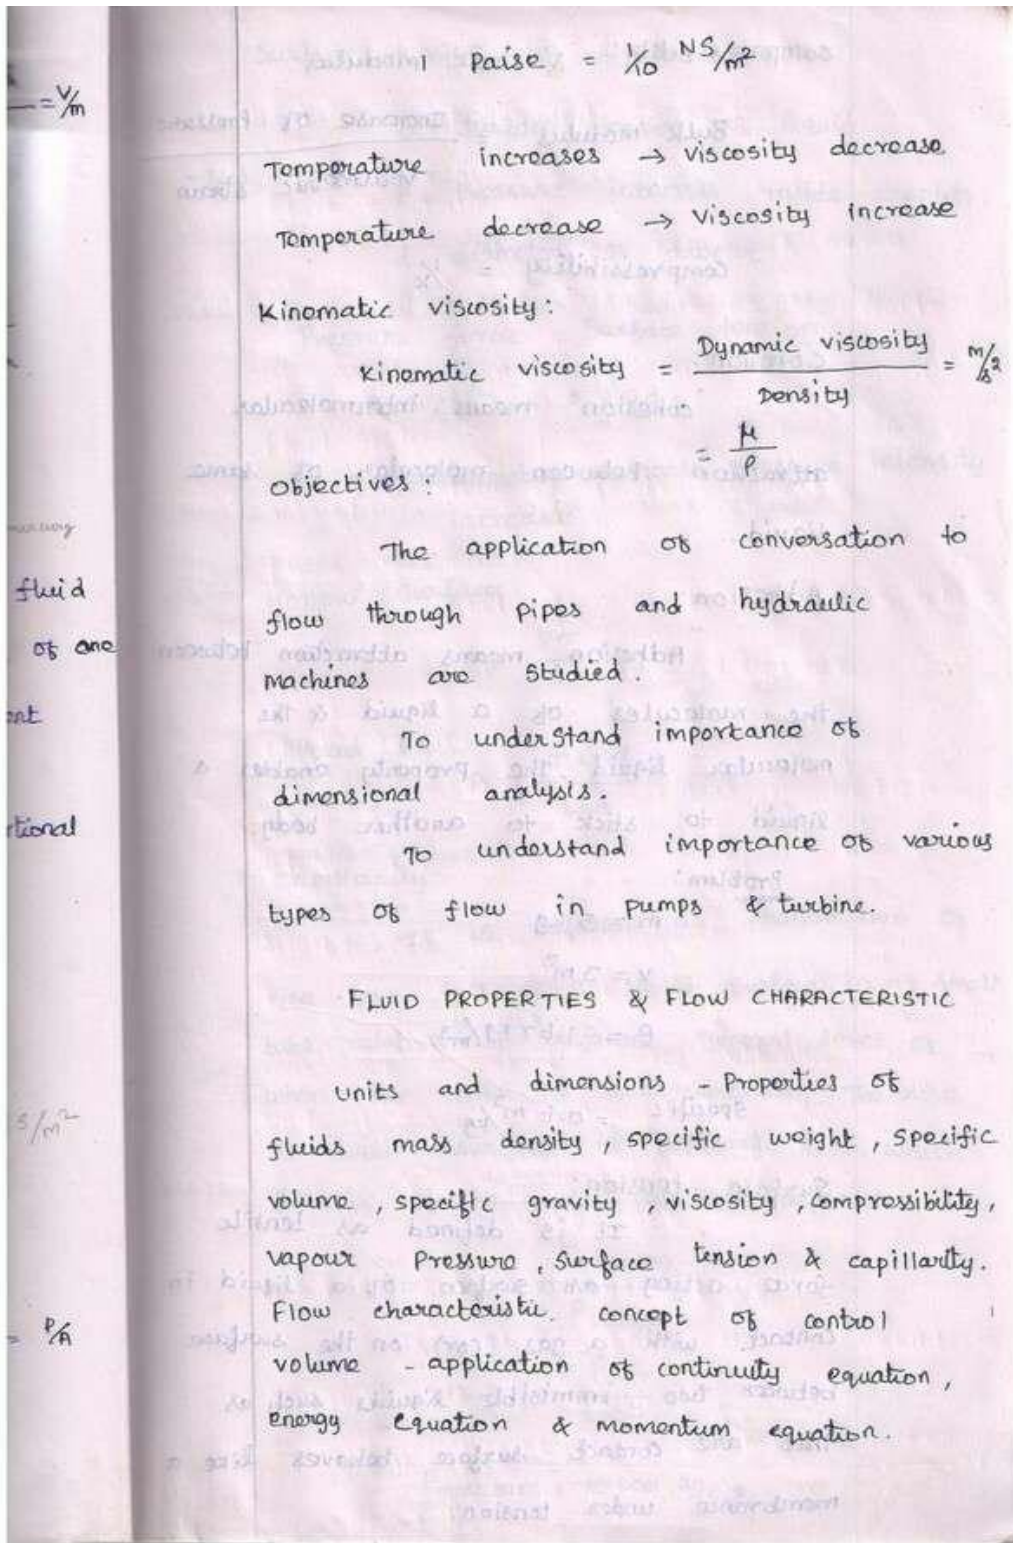 1 Paise = 1/10 NS/m²
= V/m
Temperature increases → viscosity decrease
Temperature decrease → Viscosity increase
Kinematic viscosity :
Kinematic viscosity = Dynamic viscosity / Density = m/s²
= μ/ρ
Objectives :
The application of conversation to
fluid
flow through pipes and hydraulic
of one
machines are studied.
To understand importance of
dimensional analysis.
To understand importance of various
types of flow in pumps & turbine.
FLUID PROPERTIES & FLOW CHARACTERISTIC
units and dimensions - Properties of
S/m²
fluids mass density, specific weight, specific
volume, specific gravity, viscosity, compressibility,
vapour Pressure, surface tension & capillarity.
Flow characteristic. concept of control
= P/A
volume - application of continuity equation,
energy equation & momentum equation.